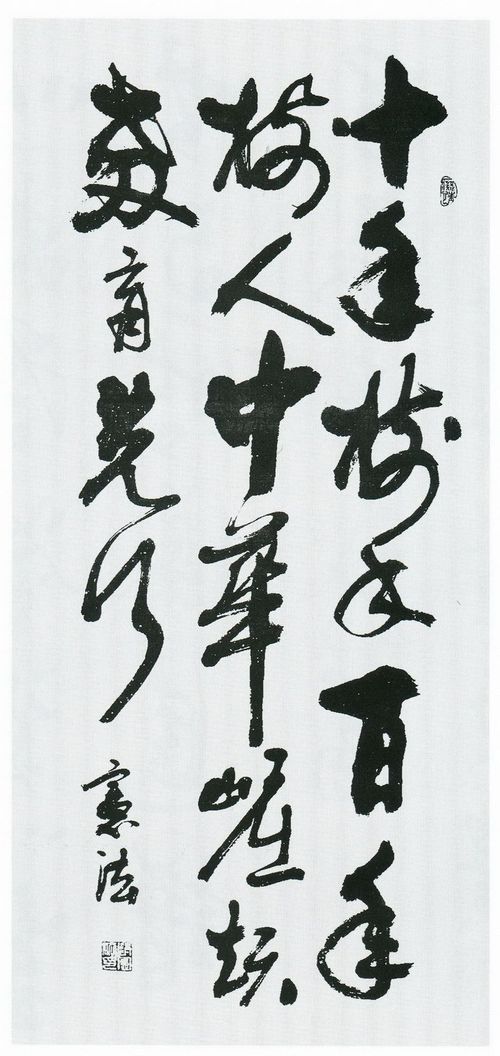 十年樹木百年
樹人中華崛起
教育先行
憲法